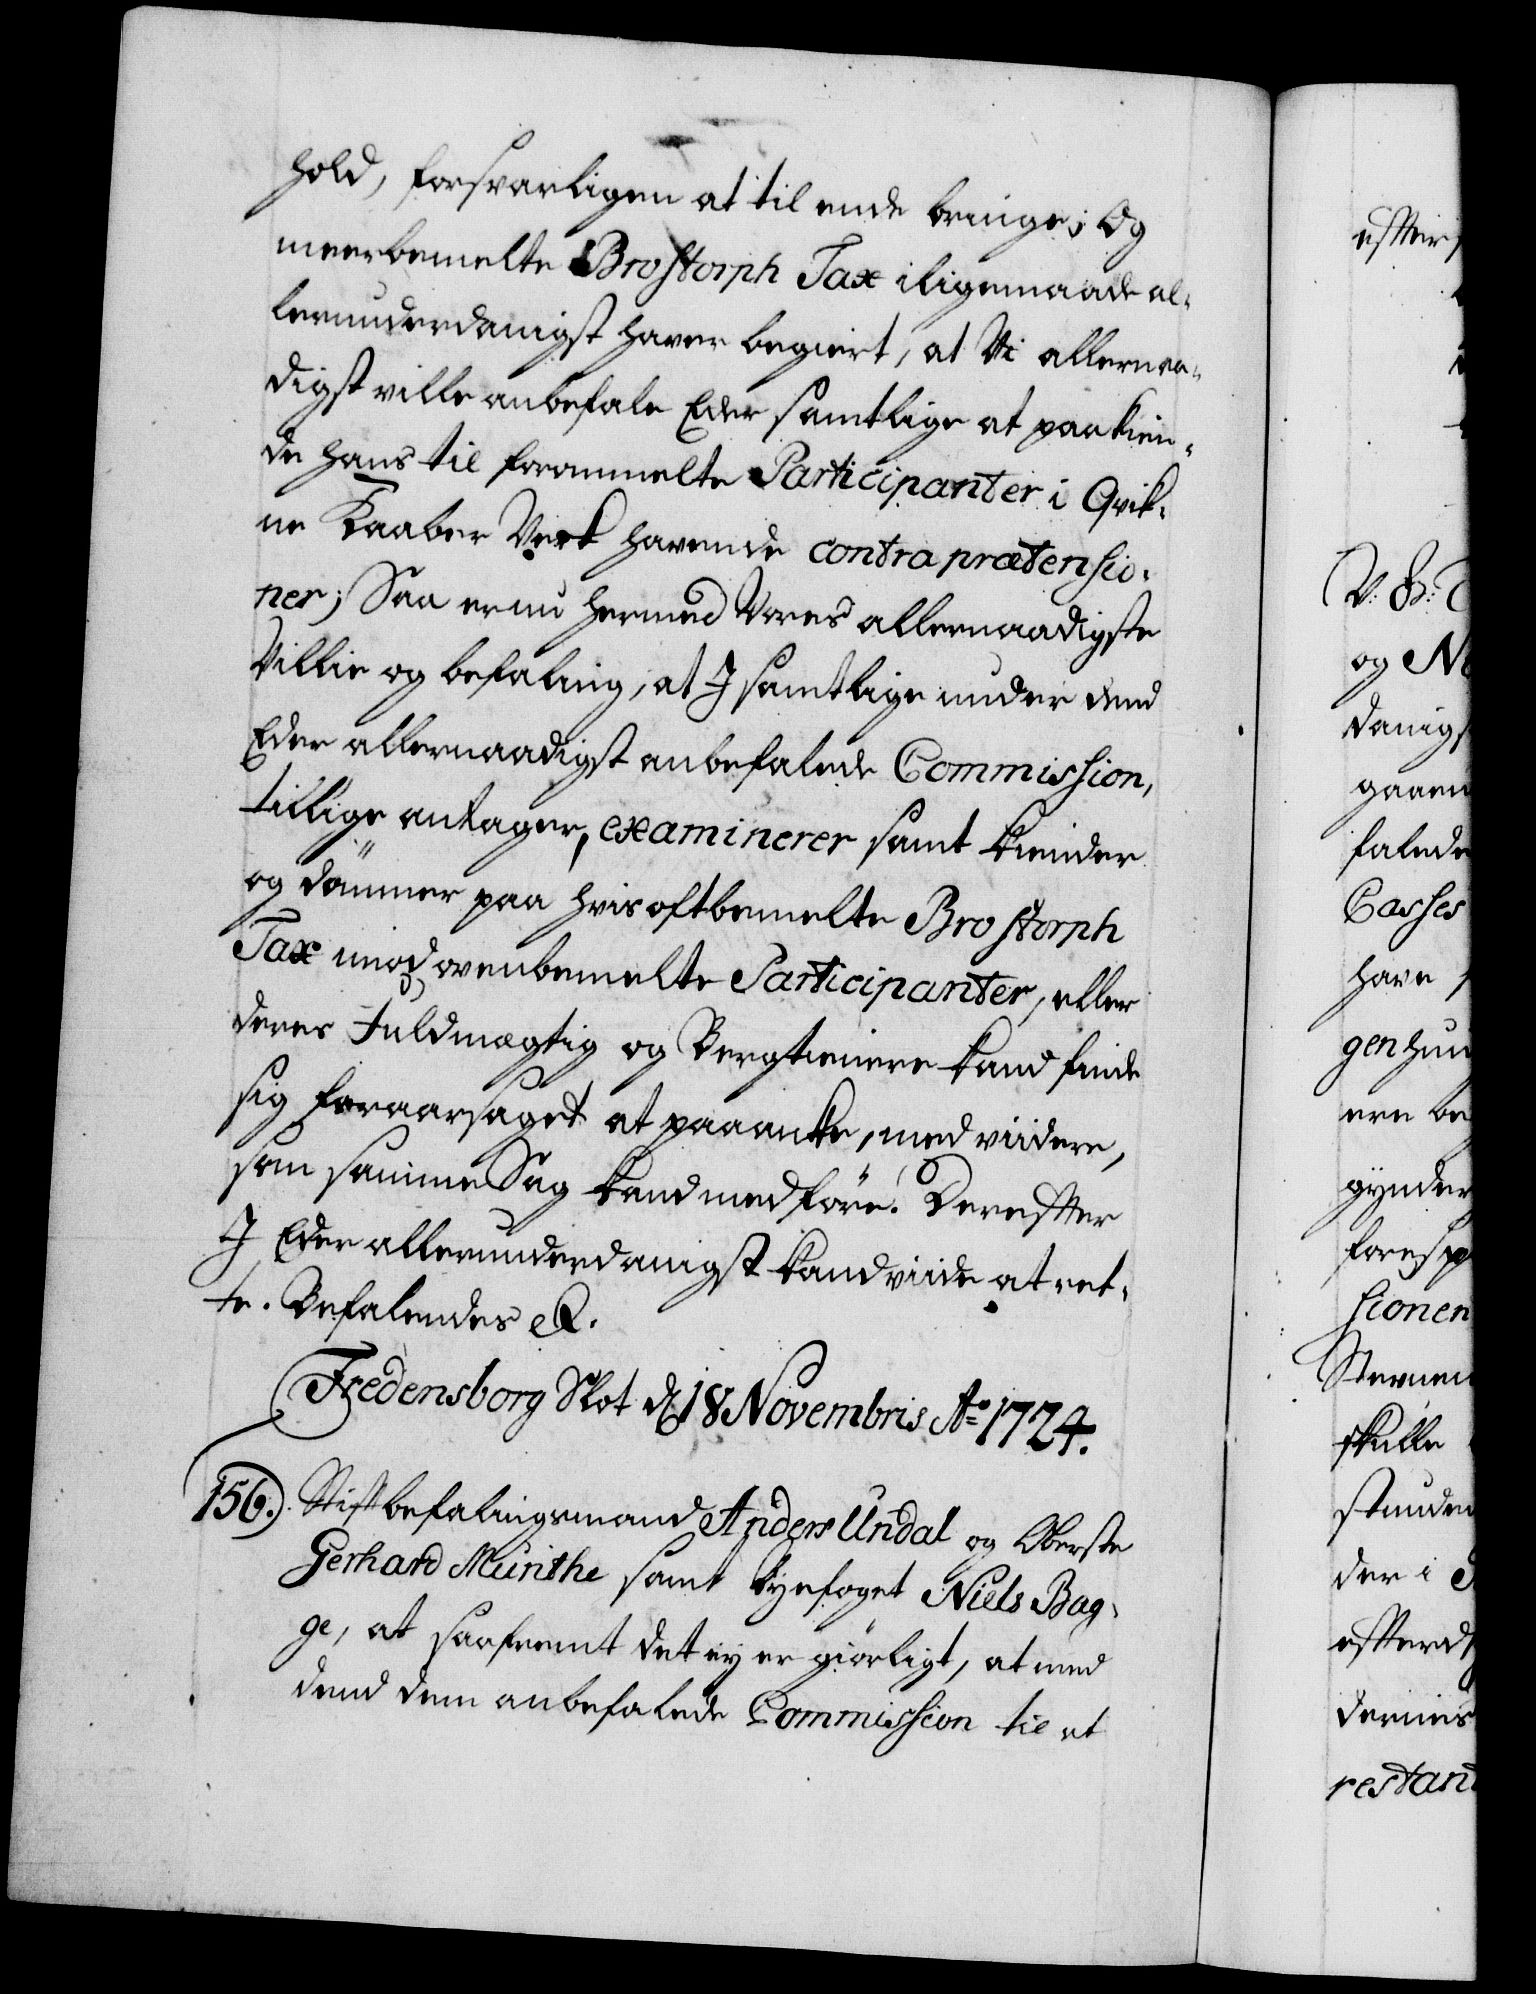 hold, forsvarligen at til ende bringe; Og
meerbemelte Brostorph Tax iligemaade al-
lerunderdanigst haver begiert, at Vi allernaa-
digst ville anbefale Eder samtlige at paakien-
de hans til forommelte Participanter i Qvik-
ne Kaaber Verk havende contraprætensio-
ner; Saa er nu hermed Vores allernaadigste
Villie og befaling, at I samtlige under dend
Eder allernaadigst anbefalede Commission,
tillige antager, examinerer samt kiender
og dömmer paa hvis oftbemelte Brostorph
Tax mod ovenbemelte Participanter, eller
deres Fuldmægtig og Bergtienere kand finde
sig foraarsaget at paaanke, med viidere,
som samme Sag kand medföre. Derefter
I Eder allerunderdanigst kand viide at ret-
te. Befalendes &.
Fredensborg Slot d 18 Novembris Ao 1724.
156. Stiftbefalingsmand Anders Undal og Oberste
Gerhard Münthe samt byefoget Niels Bag-
ge, at saafremt det ey er giörligt, at med
dend dem anbefalede Commission til at
V: G: T
og No
danigs
gaaen
falede
Casses
have
ere be
gynder
foresp
sionen
Sterven
skulle
stunde
der i
restand